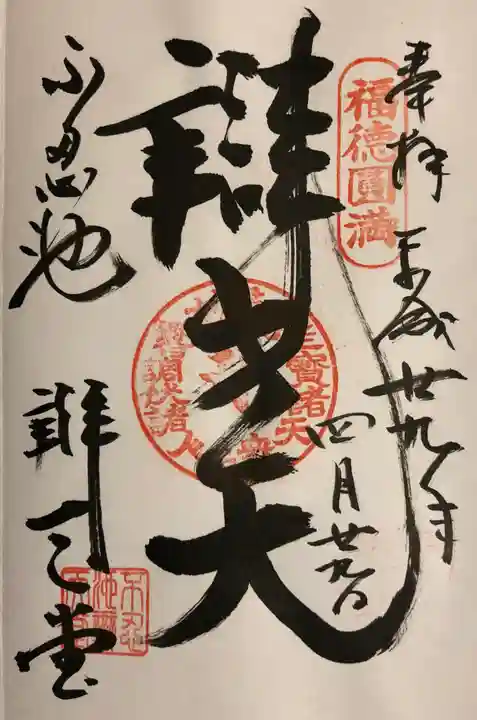 奉拝 平成廿九年
四月廿九日
福徳圓満
辯才天
不忍池
辯天堂